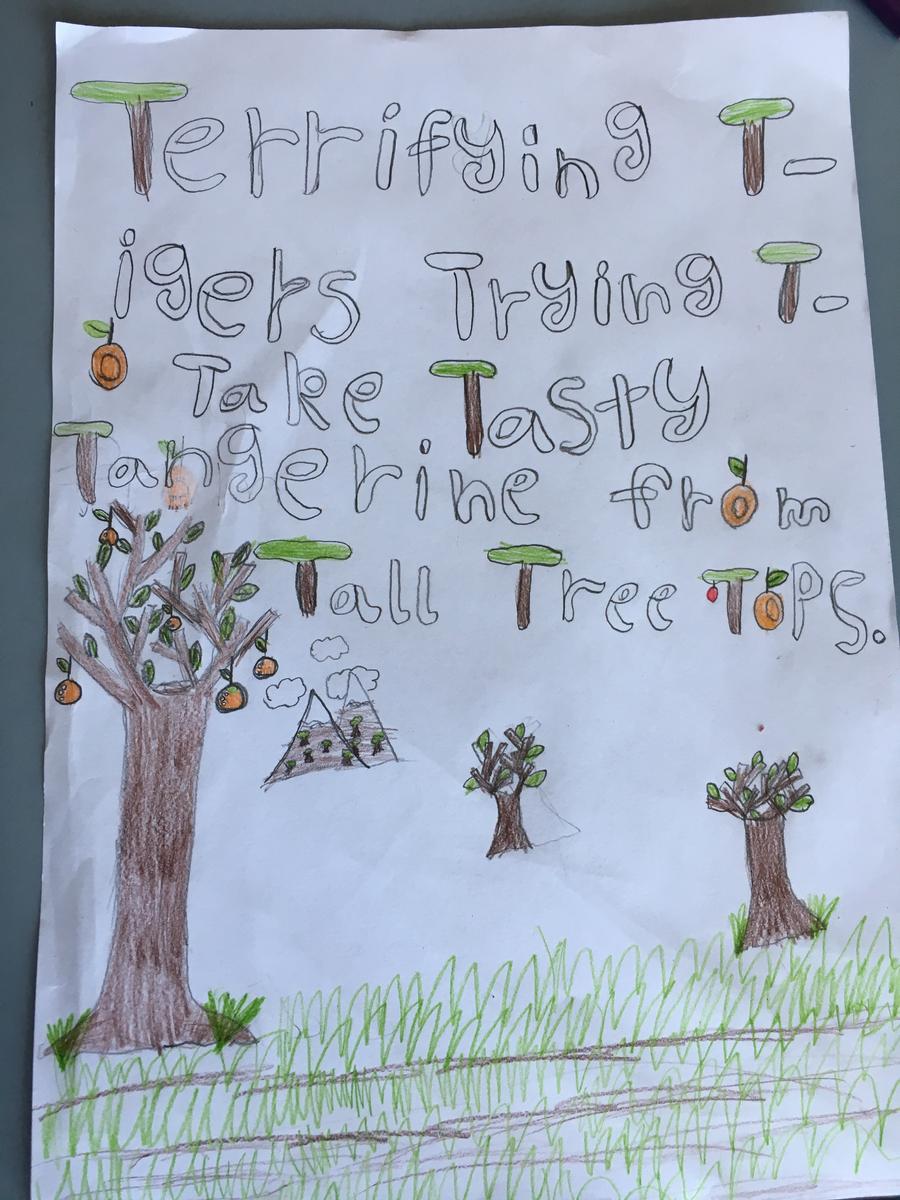 Terrifying T-
igers Trying T-
o Take Tasty
Tangerine from
Tall Tree Tops.